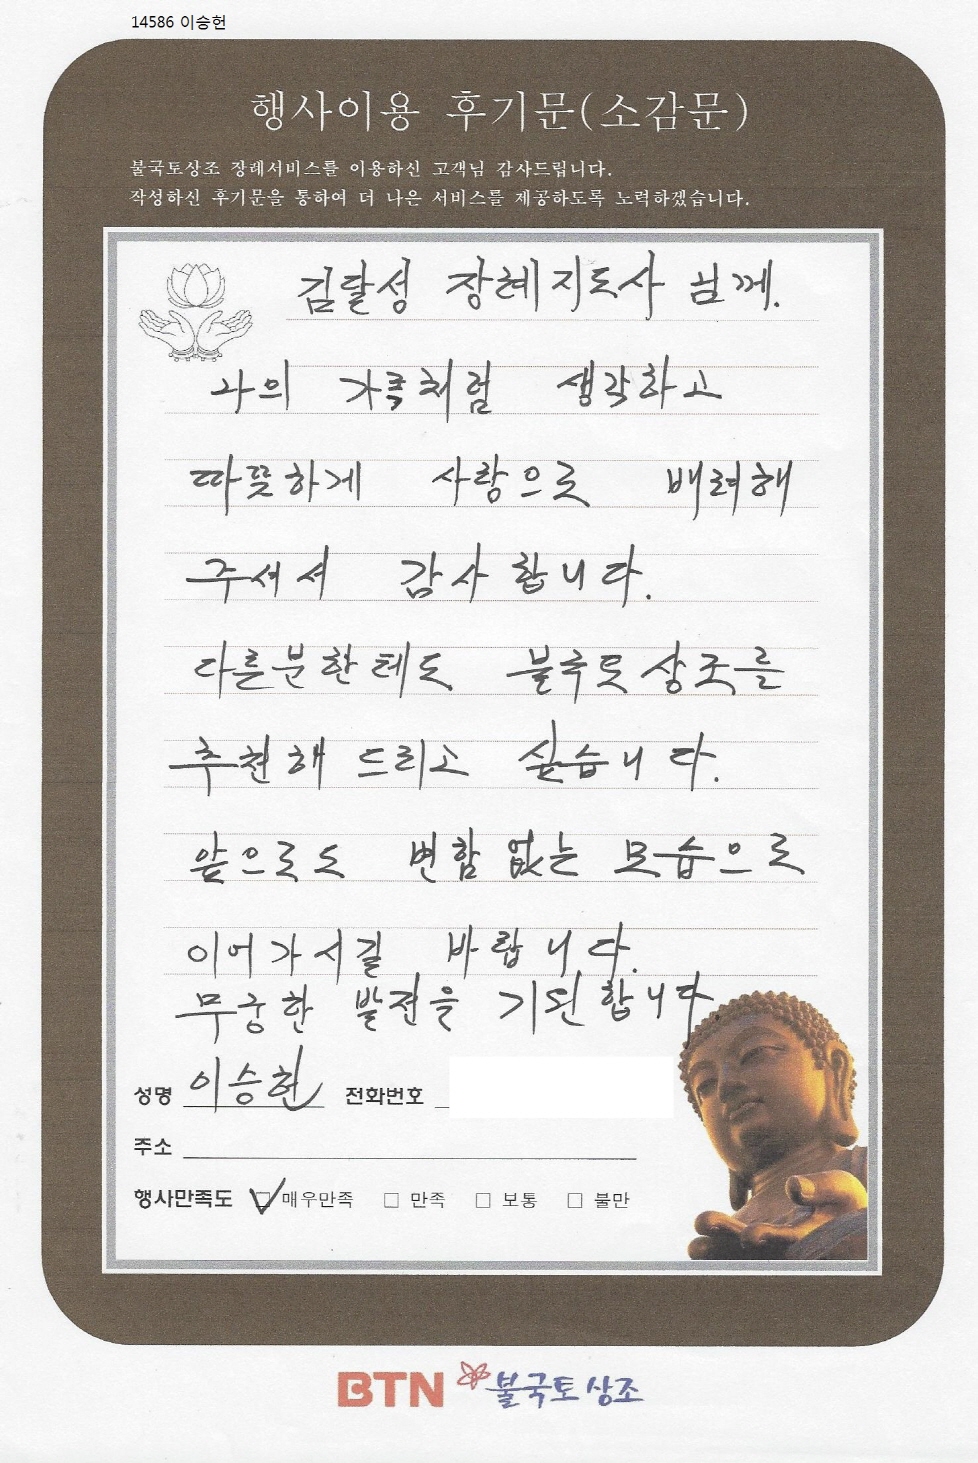 14586 이승헌
행사이용 후기문(소감문)
불국토상조 장례서비스를 이용하신 고객님 감사드립니다.
작성하신 후기문을 통하여 더 나은 서비스를 제공하도록 노력하겠습니다.
김달성 장례지도사 님께.
나의 가족처럼 생각하고
따뜻하게 사랑으로 배려해
주셔서 감사합니다.
다른분한테도 불국토상조를
추천해 드리고 싶습니다.
앞으로도 변함 없는 모습으로
이어가시길 바랍니다.
무궁한 발전을 기원합니다.
성명 이승헌 전화번호
주소
행사만족도 ☑ 매우만족 □ 만족 □ 보통 □ 불만
BTN 불국토상조